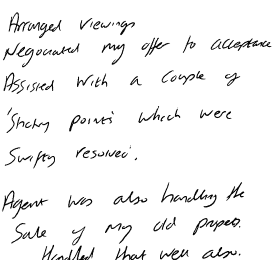 Arranged viewings
Negociated my offer to acceptance
Assisted with a couple of
'Sticky points' which were
Swiftly resolved.
Agent was also handling the
Sale of my old property.
Handled that well also.